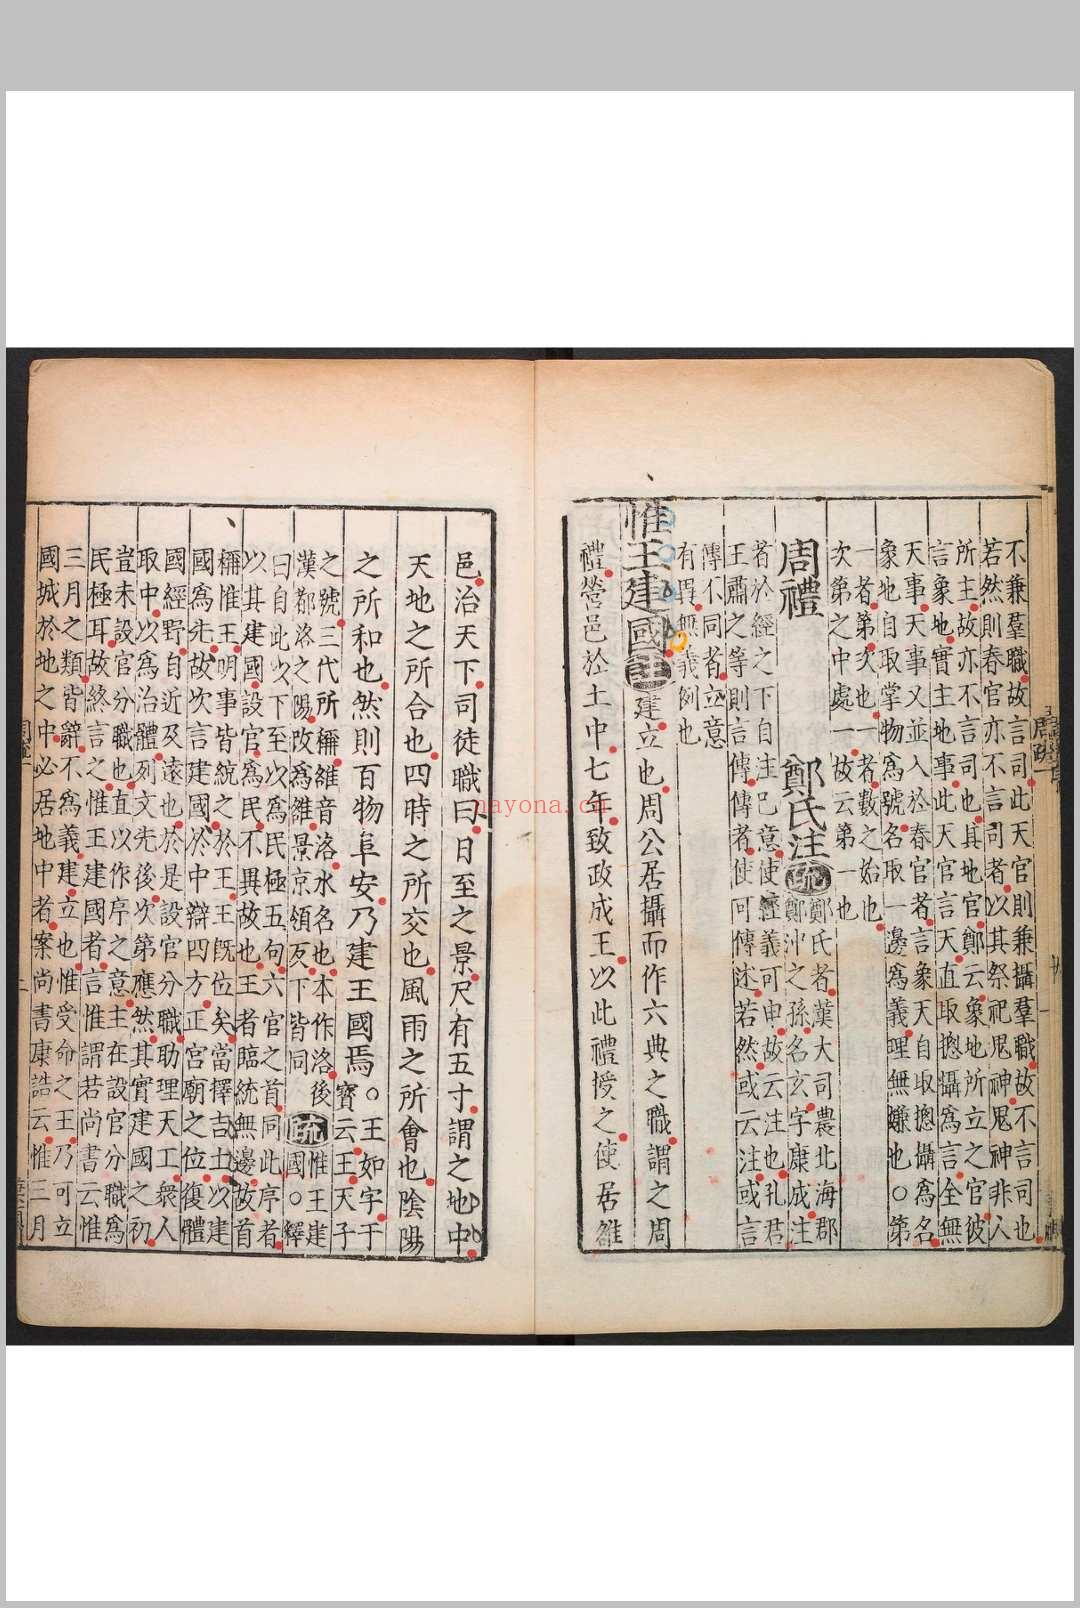 不兼羣職故言司此天官則兼攝羣職故不言司也
若然則春官亦不言司者以其祭祀鬼神鬼神非人
所主故亦不言司也其地官鄭云象地所立之官彼
言象地實主地事此天官言天直取揔攝爲言全無
天事天事又並入於春官者言象天自取揔攝爲名
象地自取掌物爲號名取一邊爲義理無嫌也○第
一者第次也一者數之始也
次第之中處一故云第一也
周禮 鄭氏注
疏
鄭氏者漢大司農北海郡
鄭沖之孫名玄字康成注
者於經之下自注己意使經義可申故云注也孔君
王肅之等則言傳傳者使可傳述若然或云注或言
傳不同者立意
有異無義例也
惟王建國
註
建立也周公居攝而作六典之職謂之周
禮營邑於土中七年致政成王以此禮授之使居雒
邑治天下司徒職曰日至之景尺有五寸謂之地中
天地之所合也四時之所交也風雨之所會也陰陽
之所和也然則百物阜安乃建王國焉○王如字于
寳云王天子
之號三代所稱雒音洛水名也本作洛後
漢都洛之陽改爲雒景京領反下皆同
疏
惟王建
國○釋
曰自此以下至以爲民極五句六官之首同此序者
以其建國設官爲民不異故也王者臨統無邊故首
稱惟王明事皆統之於王王旣位矣當擇吉土以建
國爲先故次言建國於中辯四方正宮廟之位復體
國經野自近及遠也於是設官分職助理天工衆人
取中以爲治體列文先後次第應然其實建國之初
豈未設官分職也直以作序之意主在設官分職爲
民極耳故終言之惟王建國者言惟謂若尚書云惟
三月之類皆辭不爲義建立也惟受命之王乃可立
國城於地之中必居地中者案尚書康誥云惟三月
二
nayona.cn